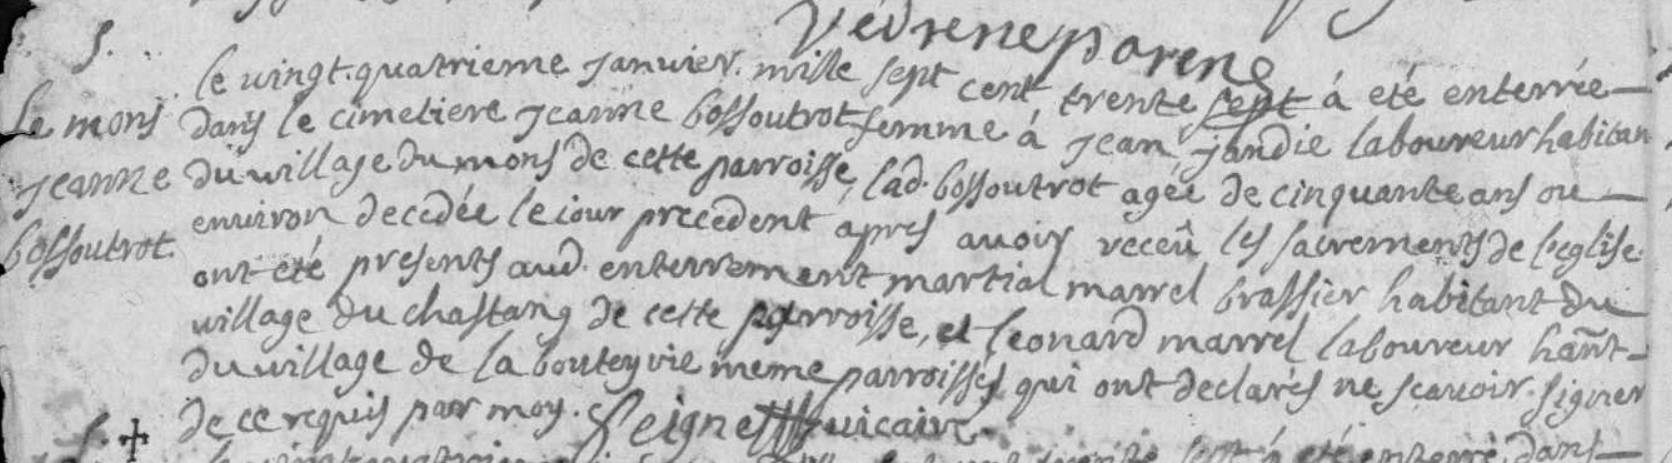 vedrene paren
S.
le vingt quatrieme janvier mille sept cent trente sept á eté enterrée
Le mons
dans le cimetiere jeanne bossoutrot femme á jean jandie laboureur habitan
jeanne
du village du mons de cette parroisse, lad. bossoutrot agée de cinquante ans ou
bossoutrot.
environ decedée le iour precedent apres avoir receû les sacrements de l'eglise.
ont eté presents aud. enterrement martial marrel brassier habitant du
village du chastang de cette parroisse, et leonard marrel laboureur hañt
du village de la bouteyvie meme parroisse, qui ont declarés ne scavoir signer
de ce requis par moy. Seigne vicaire.
S. +
á eté enterré dans